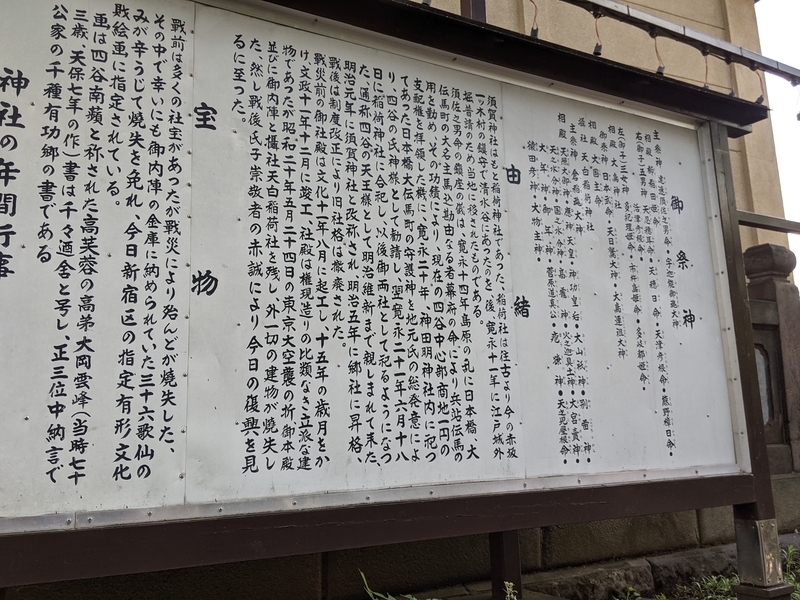 御祭神
主祭神 建速須佐之男命・宇迦能御魂大神
相殿 櫛稲田姫命・天忍穂耳命・天穂日命・天津彦根命・熊野樟日命
右(御子)五男神 活津彦根命
左(御子)三女神 多紀理姫命・市杵嶋姫命・多岐都姫命
御祭神 日本武命・天日鷲大神・大鳥連祖大神
相殿 大鳥大神
相殿 大国主命
摂社 天白稲荷神社
主祭神 倉稲魂大神
相殿
由緒
須賀神社はもと稲荷神社であった、稲荷は往古より今の赤坂
一ッ木村の鎮守で清水谷にあったのを、後、寛永十一年に江戸城外
堀普請のため当地に移されたものである。
須佐之男命の鎮座の儀は、寛永十四年島原の乱に日本橋、大
伝馬町の大名主馬込勘由なる者幕府の命により兵站伝馬の
用を勤め、その功績により、現在の四谷中心部商地一円の
支配権を拝領した機に、寛永二十年、神田明神社内に祀っ
てあった日本橋大伝馬町の守護神を地元氏の総発意によ
り、四谷の氏神様として勧請し、翌寛永二十一年六月十八
日に稲荷神社に合祀し、以後御両社として祀るようになっ
た。通称四谷の天王様として明治維新まで親しまれて来た、
明治元年に須賀神社と改称され、明治五年に郷社に昇格、
戦後は制度改正により旧社格は撤廃された。
戦災前の御社殿は文化十一年八月に起工し、十五年の歳月をか
け、文政十一年十二月に竣工、社殿は権現造りの比類なき立派な建
物であったが昭和二十年五月二十四日の東京大空襲の折御本殿
並びに御内陣と攝社天白稲荷社を残し、外一切の建物が焼失し
た、然し戦後氏子崇敬者の赤誠により今日の復興を見
るに至った。
宝物
戦前は多くの社宝があったが戦災により殆んどが焼失した、
その中で幸いにも御内陣の金庫に納められていた三十六歌仙の
みが辛うじて焼失を免れ、今日新宿区の指定有形文化
財絵画に指定されている。
画は四谷南蘋と称された高芙蓉の高弟大岡雲峰(当時七十
三歳、天保七年の作)書は千々廼舎と号し、正三位中納言で
公家の千種有功郷の書である
神社の年間行事